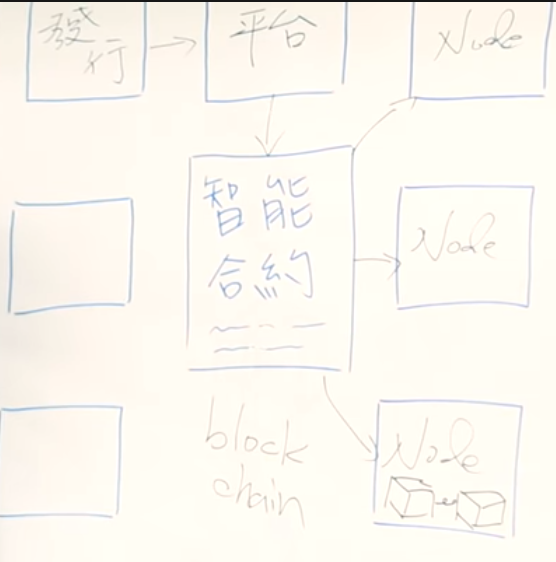 發行
平台
Node
智能
合約
Node
block
chain
Node